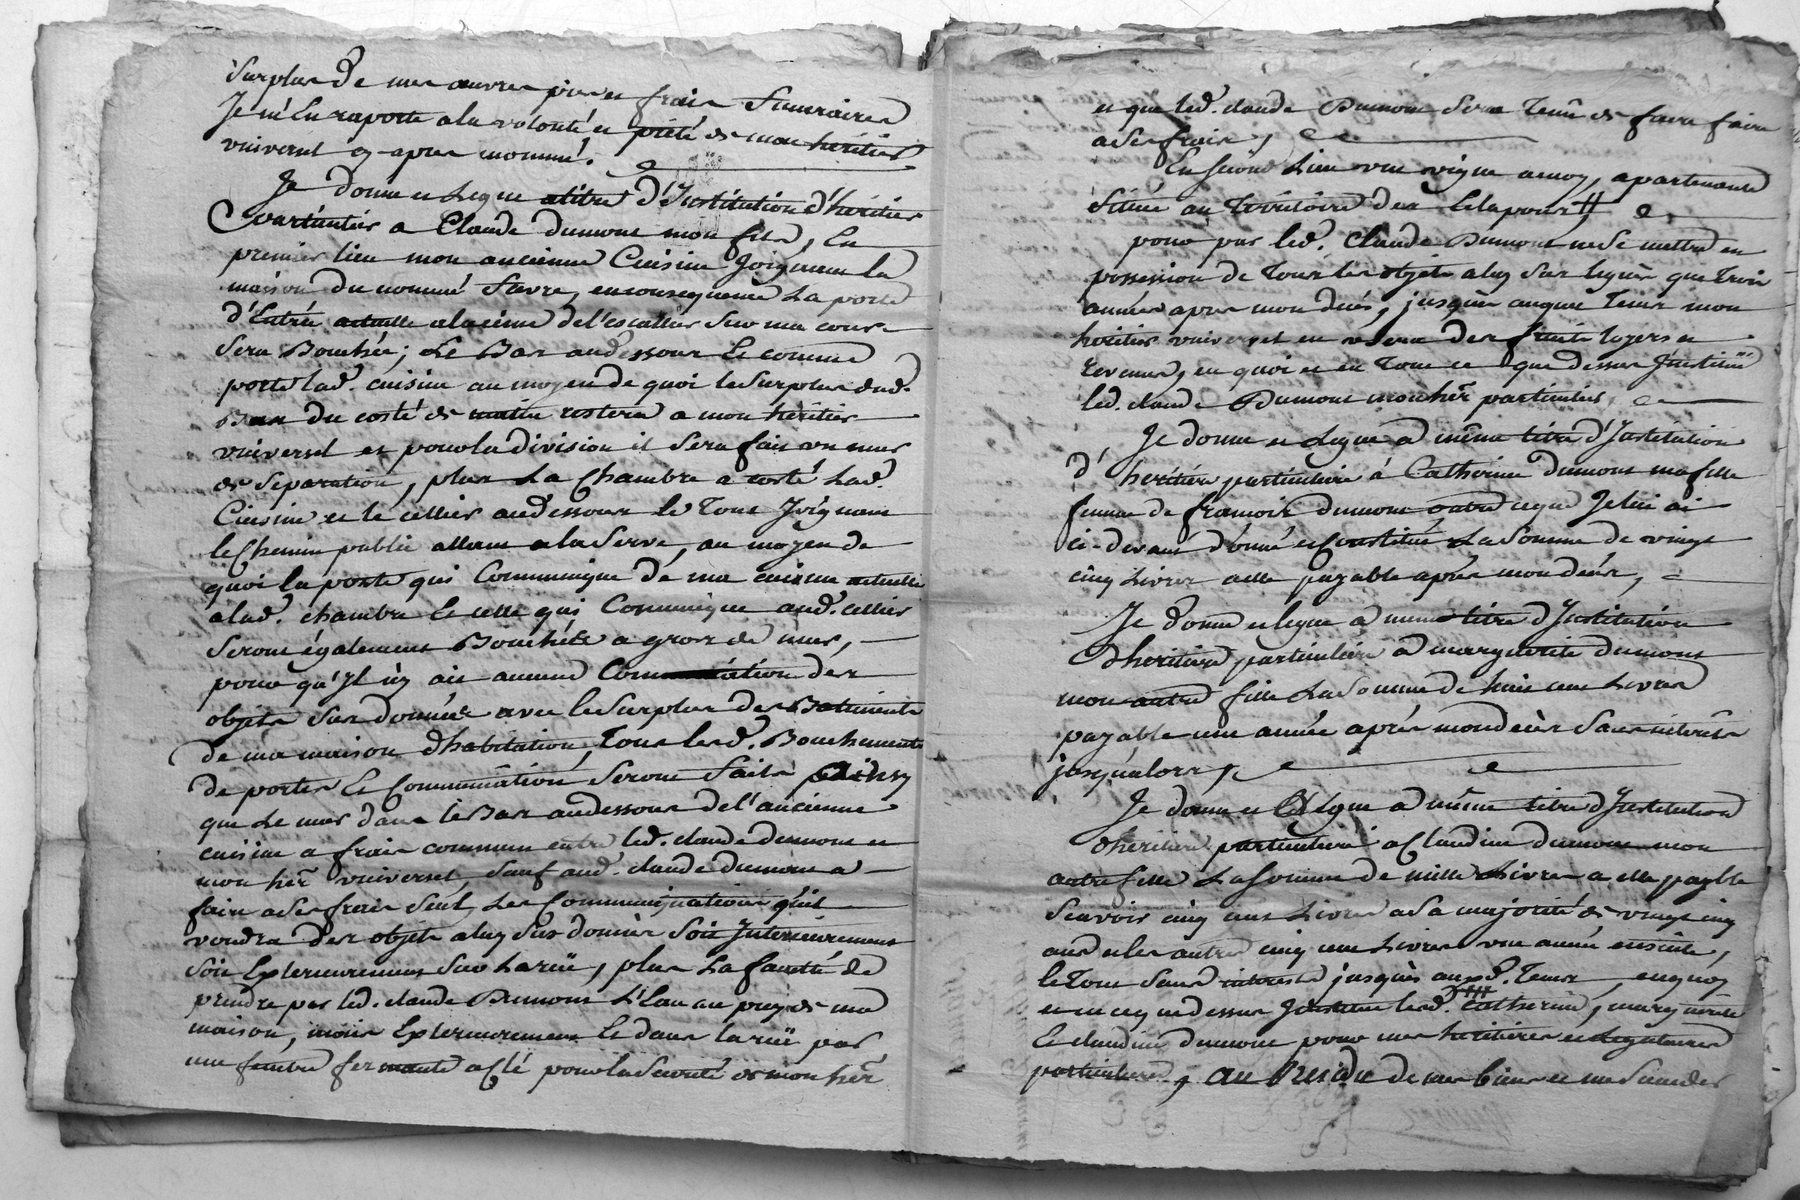 Surplus de mes œuvres pies et frais funeraires
Je m'En raporte a la volonté et piété de mon héritier
universel cy-apres nommé.
Je donne et Legue a titre d'Institution d'héritier
particulier a Claude dumont mon fils, En
premier lieu mon ancienne Cuisine Joignant la
maison du nommé favre, en consequence La porte
d'Entrée actuelle a la cime de l'escallier Sur ma cour
Sera Bouchée; Le Bas audessous Et comme
porte lad. cuisine au moyen de quoi le Surplus dud.
Bas du costé de matin restera a mon héritier
universel et pour la division il Sera fait un mur
de Separation, plus La Chambre a costé Lad.
Cuisine et le cellier audessous le Tout Joignant
le Chemin public allant a la Serve, au moyen de
quoi la porte qui Communique de ma cuisine actuelle
a lad. chambre Et celle qui Communique aud. cellier
Seront également Bouchées a gros de mur,
pour qu'Il n'y ait aucune Communication des
objets Sus donnés avec le Surplus des Batiments
de ma maison d'habitation, Tous lesd. Bouchements
de portes Et Communication Seront faits ainsy
que Le mur dans le Bas audessous de l'ancienne
cuisine a frais communs entre led. claude dumont et
mon hér. universel Sauf aud. claude dumont a
faire a Ses frais Seul, Les Communications qu'il
voudra des objets a luy Sus donnés Soit Interieurement
Soit Exterieurement Sur La rüe, plus La faculté de
prendre par led. claude Dumont L'Eau au puy de ma
maison, mais Exterieurement Et dans la rüe par
une fenêtre fermante a Clé pour la Sureté de mon hér.
et que led. claude Dumont Sera Tenu de faire faire
a Ses frais,
En Second Lieu une vigne a moy, apartenante
Située au Territoire des
pour par led. Claude Dumont ne Se mettre en
possession de Tous les objets a luy Sus legués que Trois
années apres mon décés, jusques auquel Tems mon
héritier universel en r des fruits loyers et
revenus, en quoi et en Tout ce que dessus J'institue
led. claude Dumont mon hér. particulier,
Je donne et Legue a même titre d'Institution
d'héritière particuliere à Catherine dumont ma fille
femme de françois dumont outre ce que Je lui ai
ci-devant donné et Constitué La Somme de vingt
cinq Livres a elle payable après mon décès,
Je donne et legue a meme titre d'Institution
d'héritière particuliere a marguerite dumont
mon autre fille La Somme de huit cent Livres
payable une année après mon décès Sans interêts
jusqu'alors,
Je donne et Legue a même titre d'Institution
d'héritière particuliere a Claudine dumont mon
autre fille La Somme de mille Livres a elle payable
Scavoir cinq cent Livres a Sa majorité de vingt cinq
ans et les autres cinq cent Livres une année ensuite,
le Tout Sans interest jusques auxd. Tems, en quoy
et en ce que dessus J'institue lesd. Catherine, marguerite
Et claudine dumont pour mes héritières et Legataires
particulieres, au Residu de mes biens et me Succeder